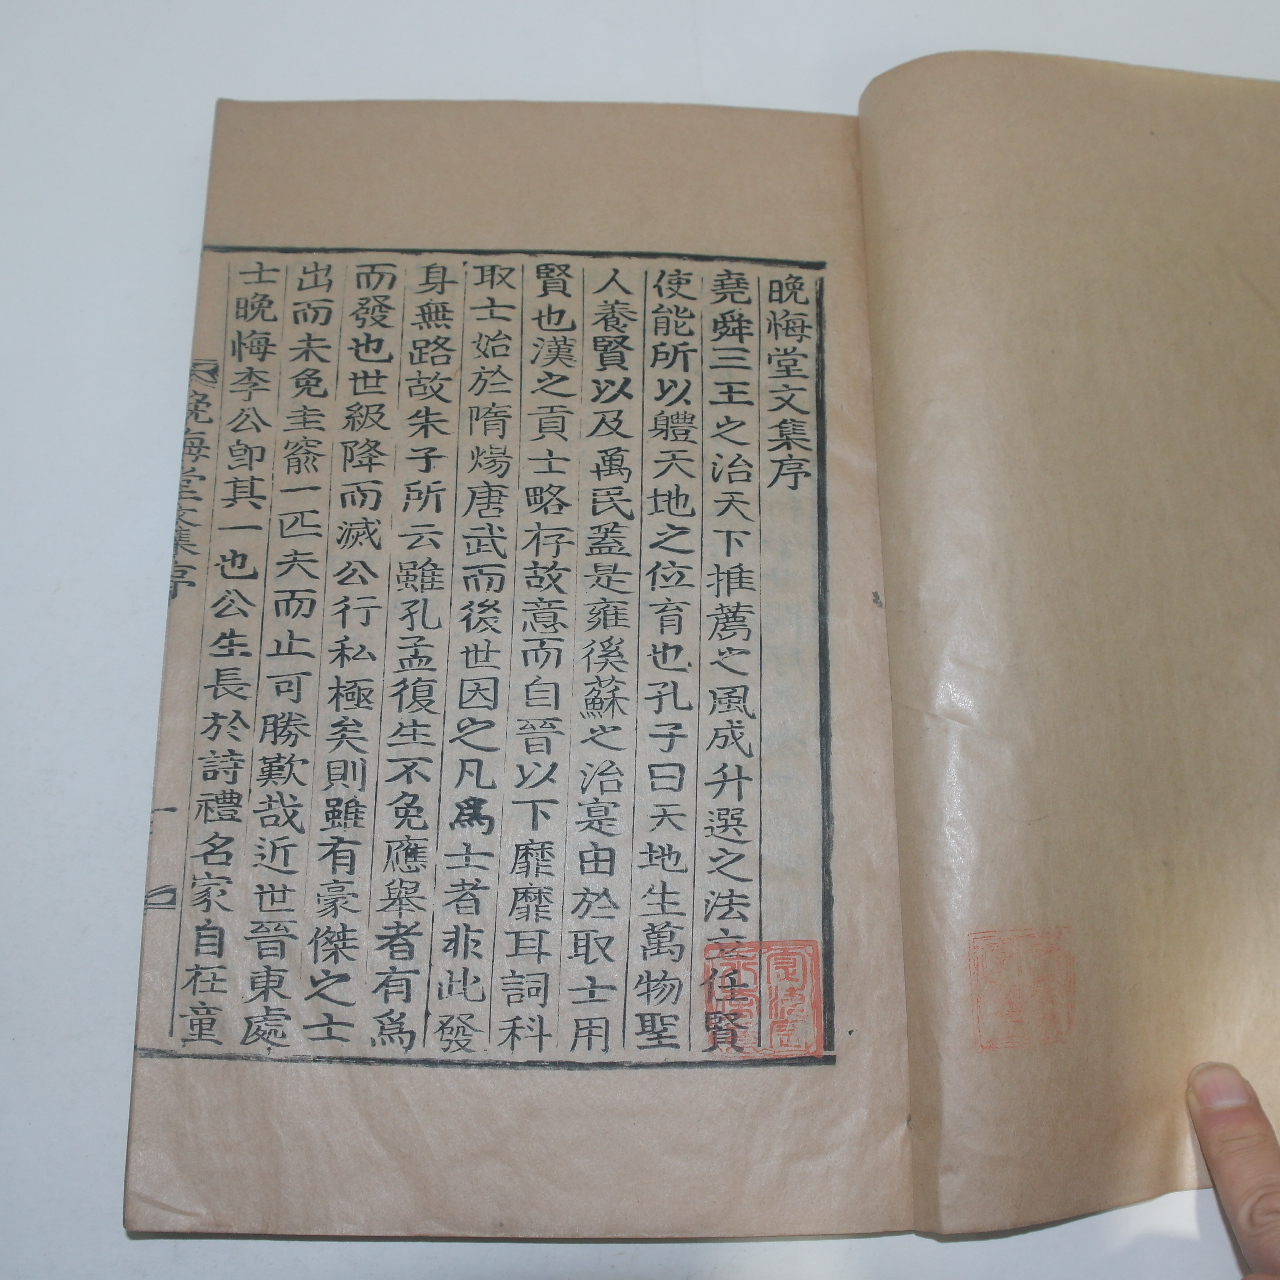 晩悔堂文集序
堯舜三王之治天下推薦之風成升選之法立任賢
使能所以軆天地之位育也孔子曰天地生萬物聖
人養賢以及萬民蓋是雍徯蘇之治寔由於取士用
賢也漢之貢士略存故意而自晉以下靡靡耳詞科
取士始於隋煬唐武而後世因之凡爲士者非此發
身無路故朱子所云雖孔孟復生不免應舉者有爲
而發也世級降而滅公行私極矣則雖有豪傑之士
出而未免圭竇一匹夫而止可勝歎哉近世晉東處
士晩悔李公卽其一也公生長於詩禮名家自在童
晩悔堂文集序
一